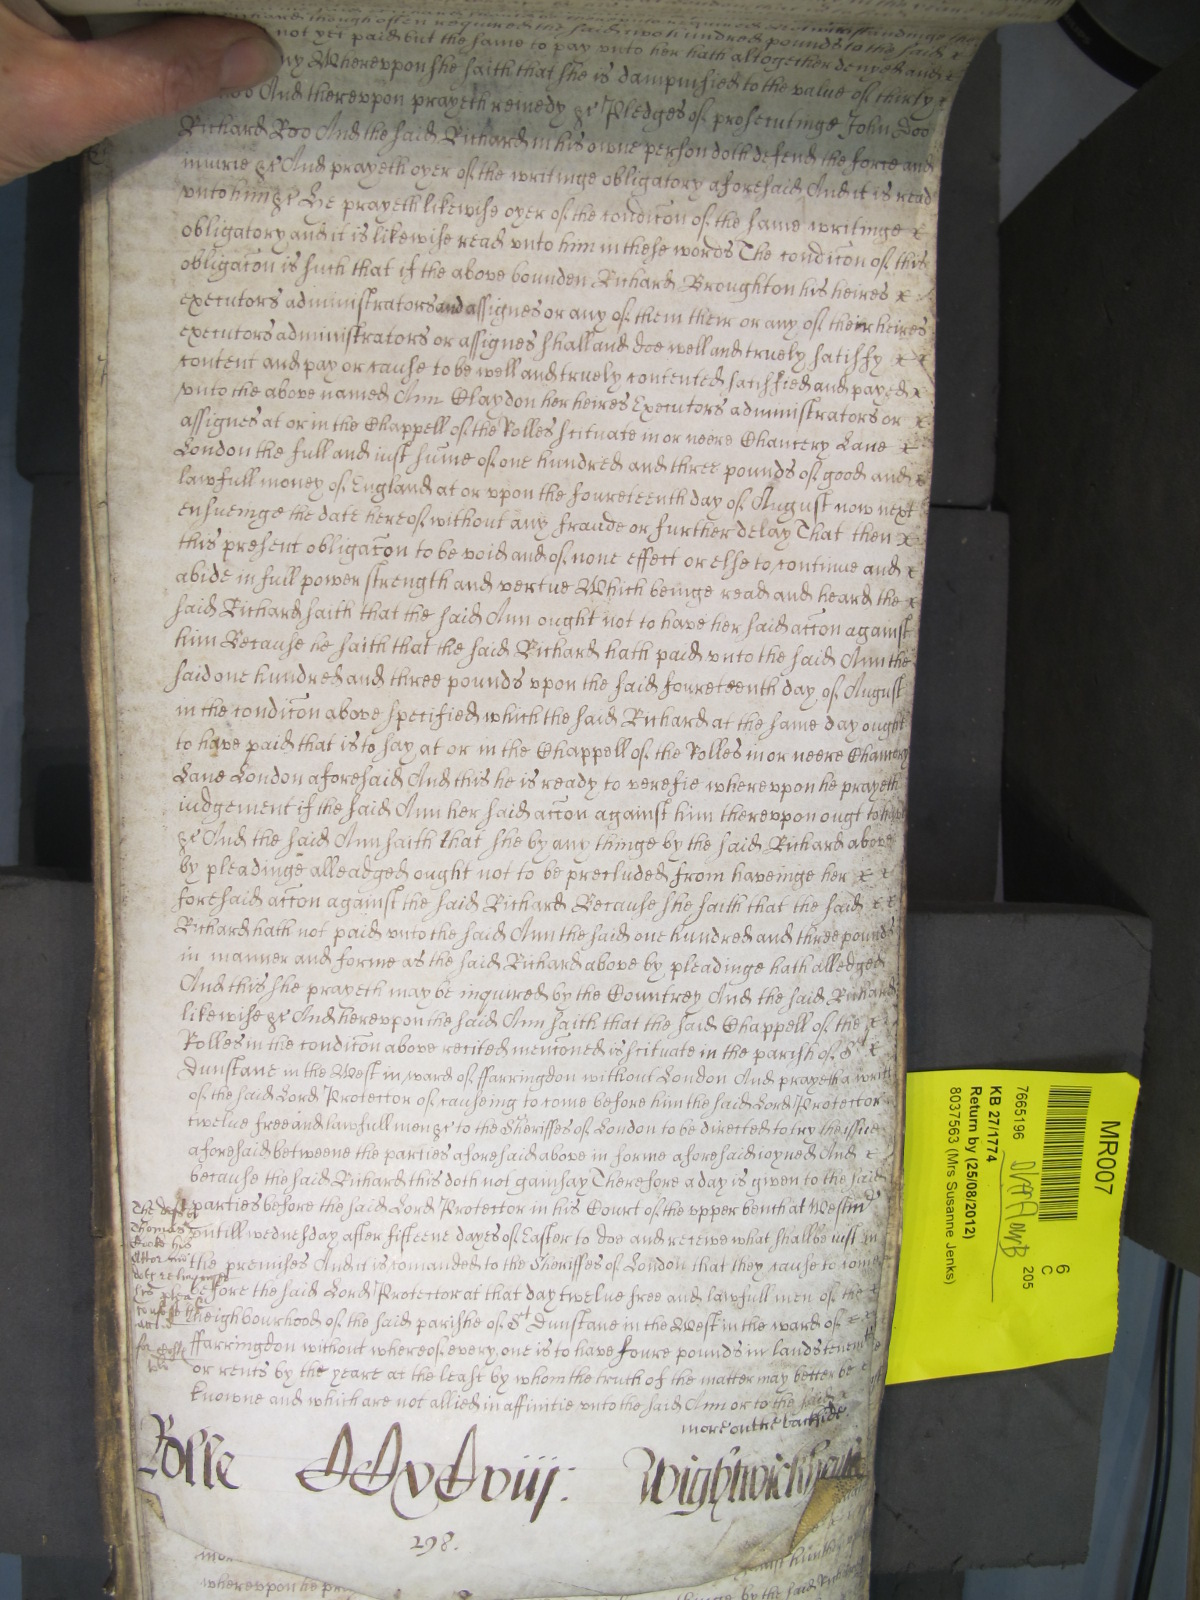 Richard though often required the said two hundred pounds to the said
not yet paid but the same to pay unto her hath altogether denyed and
Whereuppon she saith that she is dampnified to the value of thirty
And thereuppon prayeth remedy &c Pledges of prosecutinge John Doo
Richard Roo And the said Richard in his owne person doth defend the force and
iniurie &c And prayeth oyer of the writinge obligatory aforesaid And it is read
vnto him &c He prayeth likewise oyer of the condicon of the same writinge
obligatory and it is likewise read vnto him in these words The condicon of this
obligacon is such that if the above bounden Richard Broughton his heires
executors administrators and assignes or any of them their or any of their heires
executors administrators or assignes shall and doe well and truely satisfy
content and pay or cause to be well and truely contented satisfied and payed
vnto the above named Ann Claydon her heires Executors administrators or
assignes at or in the Chappell of the Rolles scituate in or neere Chancery Lane
London the full and iust sume of one hundred and three pounds of good and
lawfull money of England at or vpon the foureteenth day of August now next
ensueinge the date hereof without any fraude or further delay That then
this present obligacon to be void and of none effect or else to continue and
abide in full power strength and vertue Which beinge read and heard the
said Richard saith that the said Ann ought not to have her said accon against
him Because he saith that the said Richard hath paid vnto the said Ann the
said one hundred and three pounds vpon the said foureteenth day of August
in the condicon above specified which the said Richard at the same day ought
to have paid that is to say at or in the Chappell of the Rolles in or neere Chancery
Lane London aforesaid And this he is ready to verefie wherevpon he prayeth
iudgement if the said Ann her said accon against him therevppon ought to have
&c And the said Ann saith that she by any thinge by the said Richard above
by pleadinge alleadged ought not to be precluded from haveinge her
foresaid accon against the said Richard Because she saith that the said
Richard hath not paid vnto the said Ann the said one hundred and three pounds
in manner and forme as the said Richard above by pleadinge hath alledged
And this she prayeth may be inquired by the Countrey And the said Richard
likewise &c And herevpon the said Ann saith that the said Chappell of the
Rolles in the condicon above recited menconed is scituate in the parish of St
Dunstane in the West in ward of ffarringdon without London And prayeth a writt
of the said Lord Protector of causeing to come before him the said Lord Protector
twelue free and lawfull men &c to the Sheriffes of London to be directed to try the issue
aforesaid betweene the parties aforesaid above in forme aforesaid ioyned And
because the said Richard this doth not gainsay Therefore a day is given to the said
parties before the said Lord Protector in his Court of the vpper bench at Westmr
vntill wednesday after fifteene dayes of Easter to doe and receive what shall be iust in
the premises And it is comanded to the Sheriffes of London that they cause to come
before the said Lord Protector at that day twelve free and lawfull men of the
neighbourhood of the said parishe of St Dunstane in the West in the ward of
ffarringdon without whereof every one is to have foure pounds in lands tenem
or rents by the yeare at the least by whom the truth of the matter may better be
knowne and which are not allied in affinitie vnto the said Ann or to the said
more on the backside
The deft
Thomas
Cooke his
Attor
his plea
for
Rolle CCxCviij: Wightwick
298.
wherevpon he pr
thinge by the said Richard
MR007
6
C
205
7665196
KB 27/1774
Return by (25/08/2012)
8037563 (Mrs Susanne Jenks)